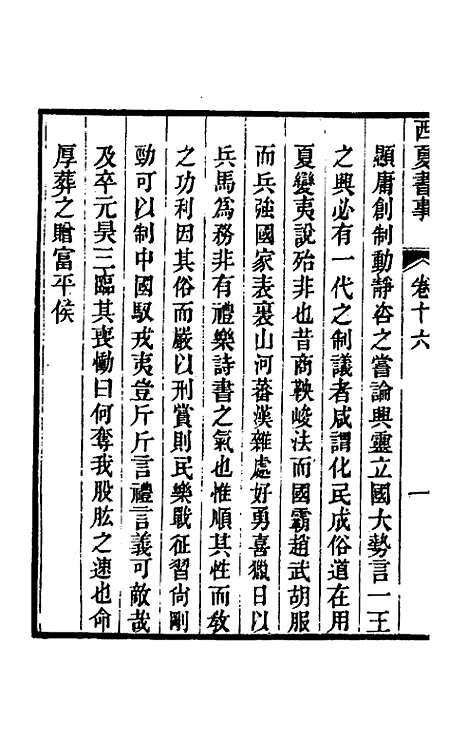 西夏書事　卷十六　一
顯庸創制動靜咨之嘗論興靈立國大勢言一王
之興必有一代之制議者咸謂化民成俗道在用
夏變夷說殆非也昔商鞅峻法而國霸趙武胡服
而兵強國家表裏山河蕃漢雜處好勇喜獵日以
兵馬爲務非有禮樂詩書之氣也惟順其性而敎
之功利因其俗而嚴以刑賞則民樂戰征習尙剛
勁可以制中國馭戎夷豈斤斤言禮言義可敵哉
及卒元昊三臨其喪慟曰何奪我股肱之速也命
厚葬之贈富平侯